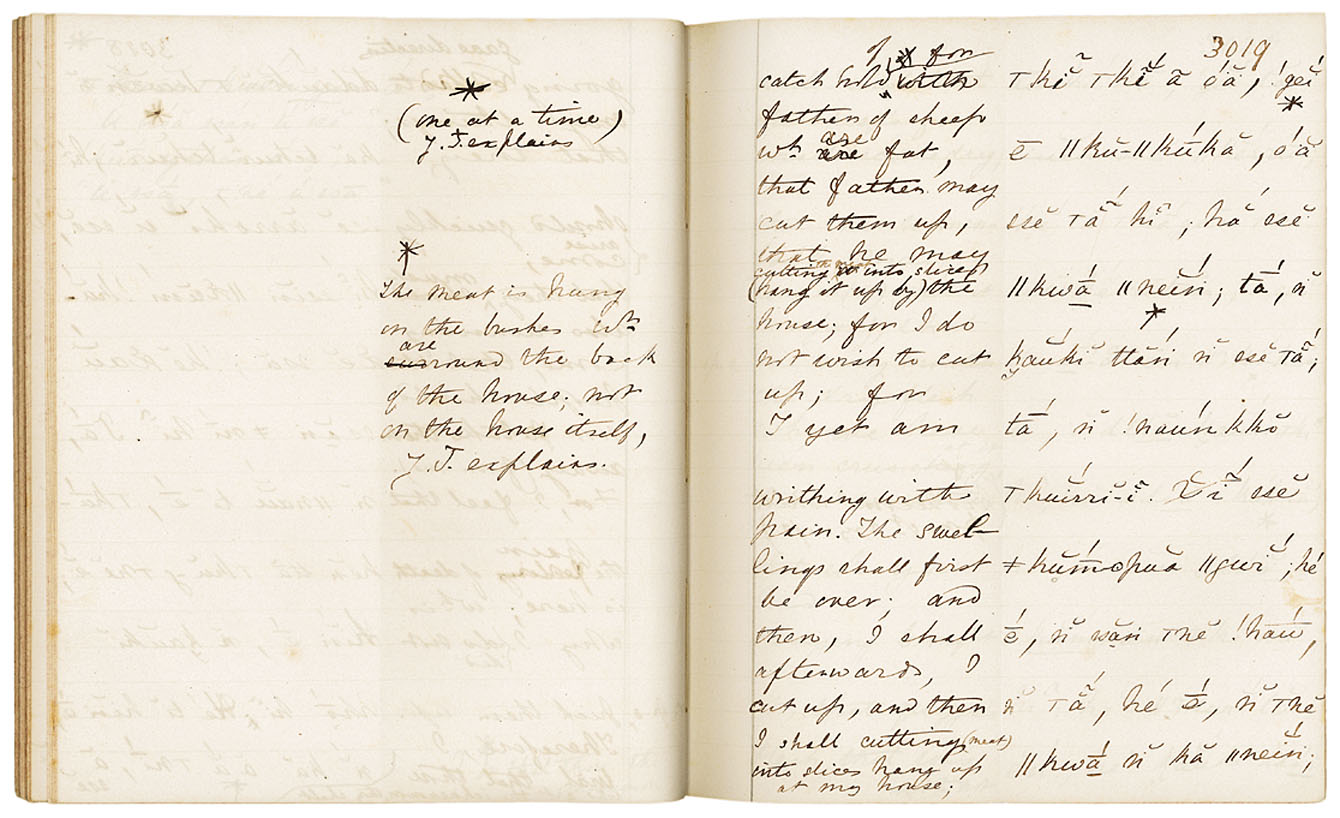 *
(one at a time)
J.T. explains
*
The meat is hung
on the bushes wh
are
surround the back
of the house; not
on the house itself,
J.T. explains.
3019
of * for
catch hold with
father of sheep
wh are are fat,
that father may
cut them up,
that he may
cutting it into slices
(hang it up by) the
house; for I do
not wish to cut
up; for
I yet am
writhing with
pain. The swel-
lings shall first
be over; and
then, I shall
afterwards, I
cut up, and then
I shall cutting (meat)
into slices hang up
at my house;
ᴛkĭ ᴛkĭ ā ó'ă, !géi
*
ē ǁkŭ-ǁkúkă, ó'ă
ssĕ ᴛā̆ hĭ; hă ssĕ
ǁkwā́ ǁneín; tā́, ń
*
kaŭkĭ ttáń ń ssĕ ᴛā̆;
tā́, ń !naúnkkŏ
ᴛkuĕrrĭ-ĭ. ssĕ
ǂkŭḿopuă ǁgwĭ; hé
é, ń wăń ᴛnĕ !haú,
ń ᴛā̆, hé é, ń ᴛnĕ
ǁkwā́ ń kă ǁneín;